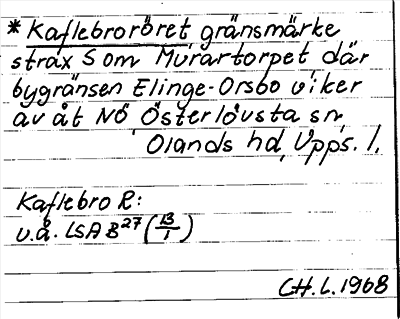 * Kaflebroröret gränsmärke
strax S om Murartorpet där
bygränsen Elinge-Orsbo viker
av åt NÖ Österlövsta sn,
Olands hd, Upps. l.
Kaflebro R:
u.å. LSA B27 (B/1)
CH.L. 1968